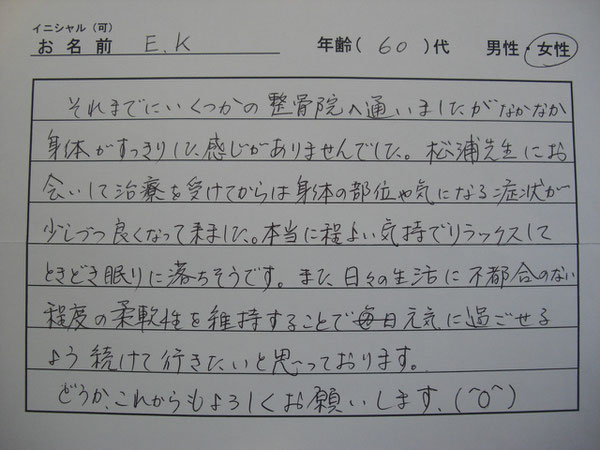 イニシャル（可）
お名前 E.K 年齢（60）代 男性・女性
それまでにいくつかの整骨院へ通いましたがなかなか
身体がすっきりした感じがありませんでした。松浦先生にお
会いして治療を受けてからは身体の部位や気になる症状が
少しづつ良くなって来ました。本当に程よい気持でリラックスして
ときどき眠りに落ちそうです。また、日々の生活に不都合のない
程度の柔軟性を維持することで毎日元気に過ごせる
よう続けて行きたいと思っております。
どうか、これからもよろしくお願いします、(^O^)